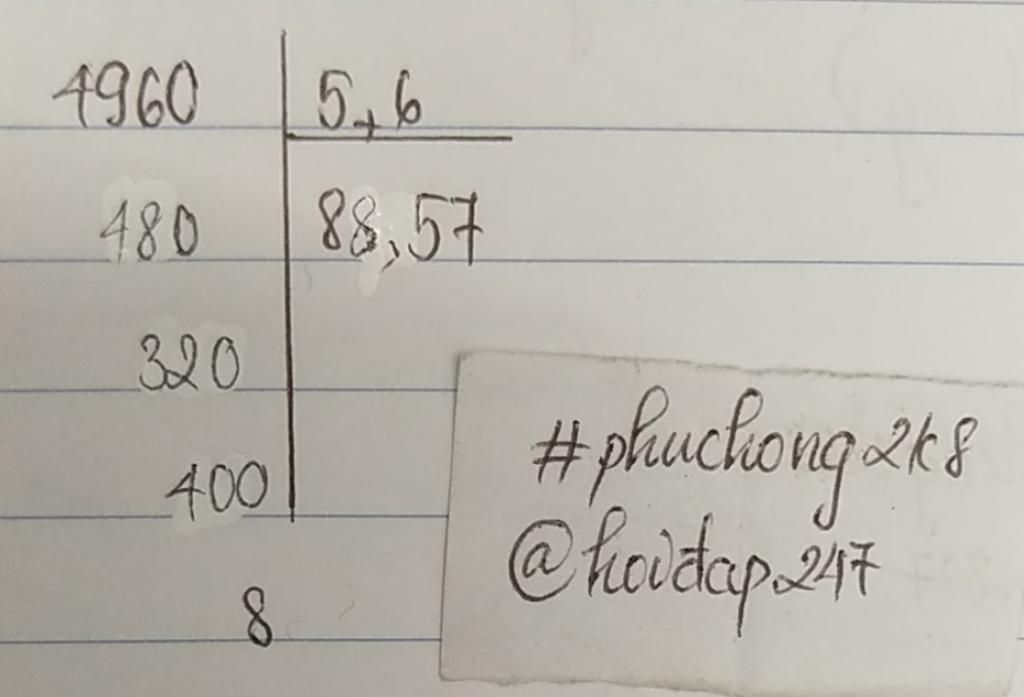 4960 5,6
480 88,57
320
400
8
#phuchong2k8
@hoidap247